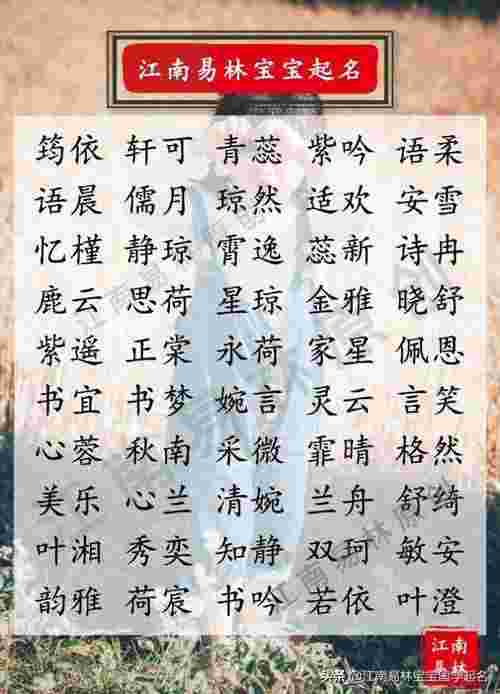 江南易林宝宝起名
筠依 轩可 青蕊 紫吟 语柔
语晨 儒月 琼然 适欢 安雪
忆槿 静琼 霄逸 蕊新 诗冉
鹿云 思荷 星琼 金雅 晓舒
紫遥 正棠 永荷 家星 佩恩
书宜 书梦 婉言 灵云 言笑
心蓉 秋南 采微 霏晴 格然
美乐 心兰 清婉 兰舟 舒绮
叶湘 秀奕 知静 双珂 敏安
韵雅 荷宸 书吟 若依 叶澄
江南
易林
头条 @江南易林宝宝国学起名